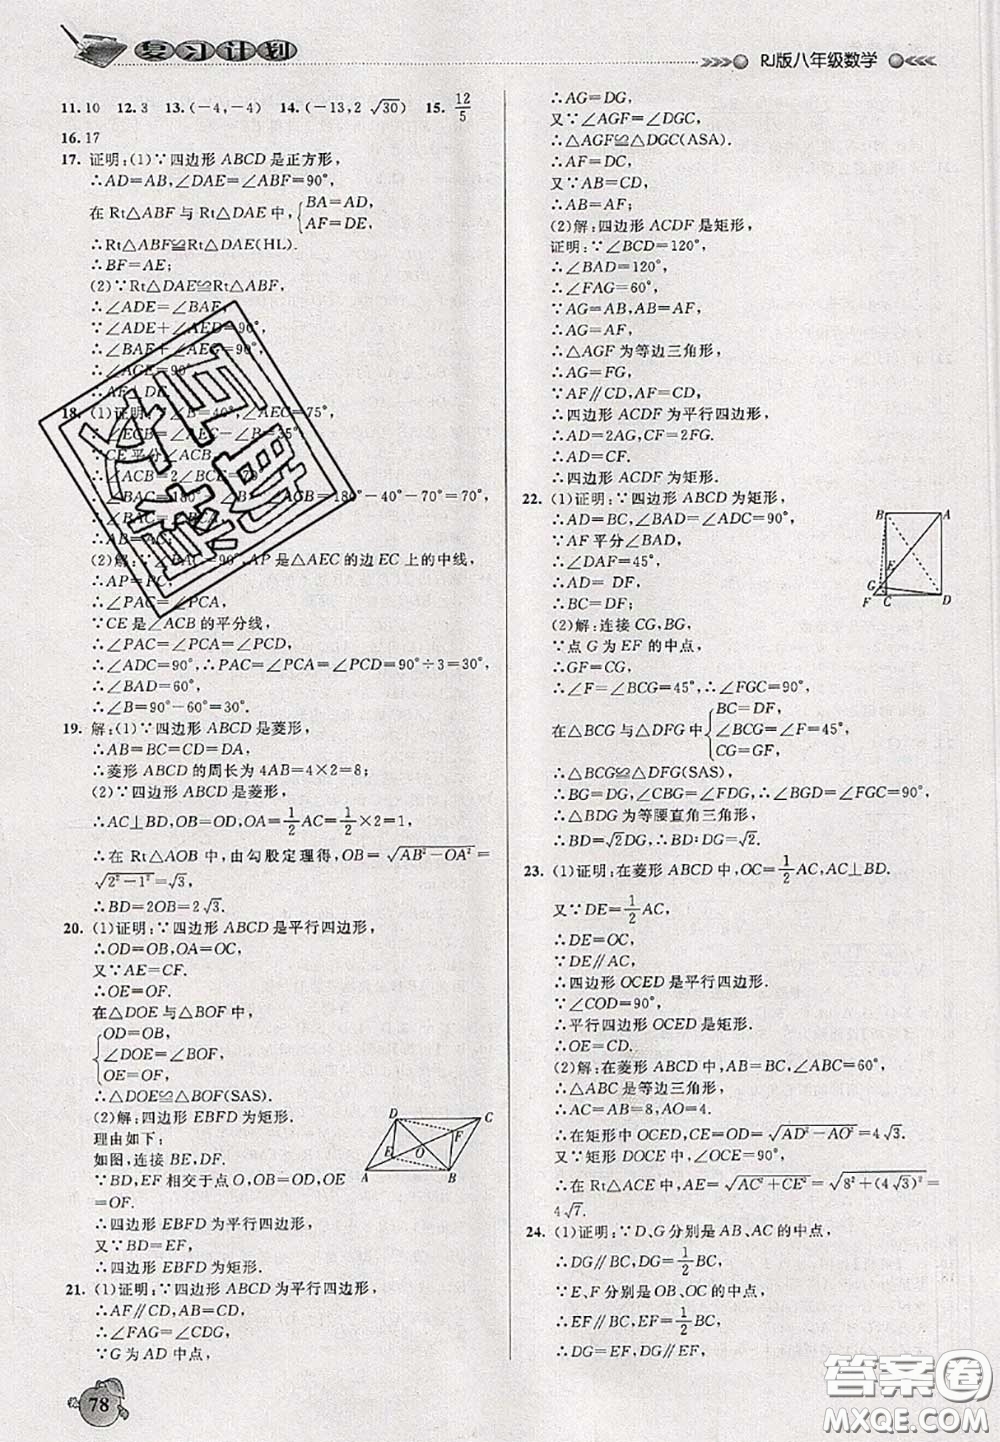 复习计划
RJ版八年级数学
11.10 12.3 13.(-4,-4) 14.(-13,2√30) 15.12/5
16.17
17. 证明:(1)∵四边形ABCD是正方形,
∴AD=AB,∠DAE=∠BAF=90°,
在Rt△ABF与Rt△DAE中,{BA=AD, AF=DE,
∴Rt△ABF≌Rt△DAE(HL).
∴BF=AE;
(2)∵Rt△DAE≌Rt△ABF,
∴∠ADE=∠BAE,
∵∠ADE+∠AED=90°,
∴∠BAE+∠AEG=90°,
∴∠AGE=90°,
∴AF⊥DE.
18. (1)证明:∵∠B=40°,∠AEC=75°,
∴∠ECB=∠AEC-∠B=35°,
∵CE平分∠ACB,
∴∠ACB=2∠BCE=70°,
∴∠BAC=180°-∠B-∠ACB=180°-40°-70°=70°,
∴∠BAC=∠BCA,
∴AB=
(2)解:∵∠BAC=90°,AP是△AEC的边EC上的中线,
∴AP=PC,
∴∠PAC=∠PCA,
∵CE是∠ACB的平分线,
∴∠PAC=∠PCA=∠PCD,
∴∠ADC=90°,∴PAC=∠PCA=∠PCD=90°÷3=30°,
∴∠BAD=60°,
∴∠B=90°-60°=30°.
19. 解:(1)∵四边形ABCD是菱形,
∴AB=BC=CD=DA,
∴菱形ABCD的周长为4AB=4×2=8;
(2)∵四边形ABCD是菱形,
∴AC⊥BD,OB=OD,OA=1/2AC=1/2×2=1,
∴在Rt△AOB中,由勾股定理得,OB=√(AB²-OA²)=
√(2²-1²)=√3,
∴BD=2OB=2√3.
20. (1)证明:∵四边形ABCD是平行四边形,
∴OD=OB,OA=OC,
又∵AE=CF.
∴OE=OF.
在△DOE与△BOF中,
{OD=OB,
∠DOE=∠BOF,
OE=OF,
∴△DOE≌△BOF(SAS).
(2)解:四边形EBFD为矩形.
理由如下:
如图,连接BE,DF.
∵BD,EF相交于点O,OB=OD,OE=OF,
∴四边形EBFD为平行四边形,
又∵BD=EF,
∴四边形EBFD为矩形.
D C F E O A B
21. (1)证明:∵四边形ABCD为平行四边形,
∴AF∥CD,AB=CD,
∴∠FAG=∠CDG,
∵G为AD中点,
78
∴AG=DG,
又∵∠AGF=∠DGC,
∴△AGF≌△DGC(ASA).
∴AF=DC,
又∵AB=CD,
∴AB=AF;
(2)解:四边形ACDF是矩形,
证明:∵∠BCD=120°,
∴∠BAD=120°,
∴∠FAG=60°,
∵AG=AB,AB=AF,
∴AG=AF,
∴△AGF为等边三角形,
∴AG=FG,
∵AF∥CD,AF=CD,
∴四边形ACDF为平行四边形,
∴AD=2AG,CF=2FG.
∴AD=CF.
∴四边形ACDF为矩形.
22. (1)证明:∵四边形ABCD为矩形,
∴AD=BC,∠BAD=∠ADC=90°,
∵AF平分∠BAD,
∴∠DAF=45°,
∴AD= DF,
∴BC= DF;
(2)解:连接CG,BG,
∵点G为EF的中点,
∴GF=CG,
∴∠F=∠BCG=45°,∠FGC=90°,
在△BCG与△DFG中{BC=DF, ∠BCG=∠F, CG=GF,
∴△BCG≌△DFG(SAS),
∴BG=DG,∠CBG=∠FDG,∴∠BGD=∠FGC=90°,
∴△BDG为等腰直角三角形,
∴BD=√2DG,∴BD:DG=√2.
B A E G F C D
23. (1)证明:在菱形ABCD中,OC=1/2AC,AC⊥BD.
又∵DE=1/2AC,
∴DE=OC,
∵DE∥AC,
∴四边形OCED是平行四边形,
∵∠COD=90°,
∴平行四边形OCED是矩形.
∴OE=CD.
(2)解:在菱形ABCD中,AB=BC,∠ABC=60°,
∴△ABC是等边三角形,
∴AC=AB=8,AO=4.
∴在矩形中OCED,CE=OD=√(AD²-AO²)=4√3.
又∵矩形DOCE中,∠OCE=90°,
∴在Rt△ACE中,AE=√(AC²+CE²)=√(8²+(4√3)²)=
4√7.
24. (1)证明:∵D、G分别是AB、AC的中点,
∴DG∥BC,DG=1/2BC,
∵E、F分别是OB、OC的中点,
∴EF∥BC,EF=1/2BC,
∴DG=EF,DG∥EF,
答案圈
MXQE.COM